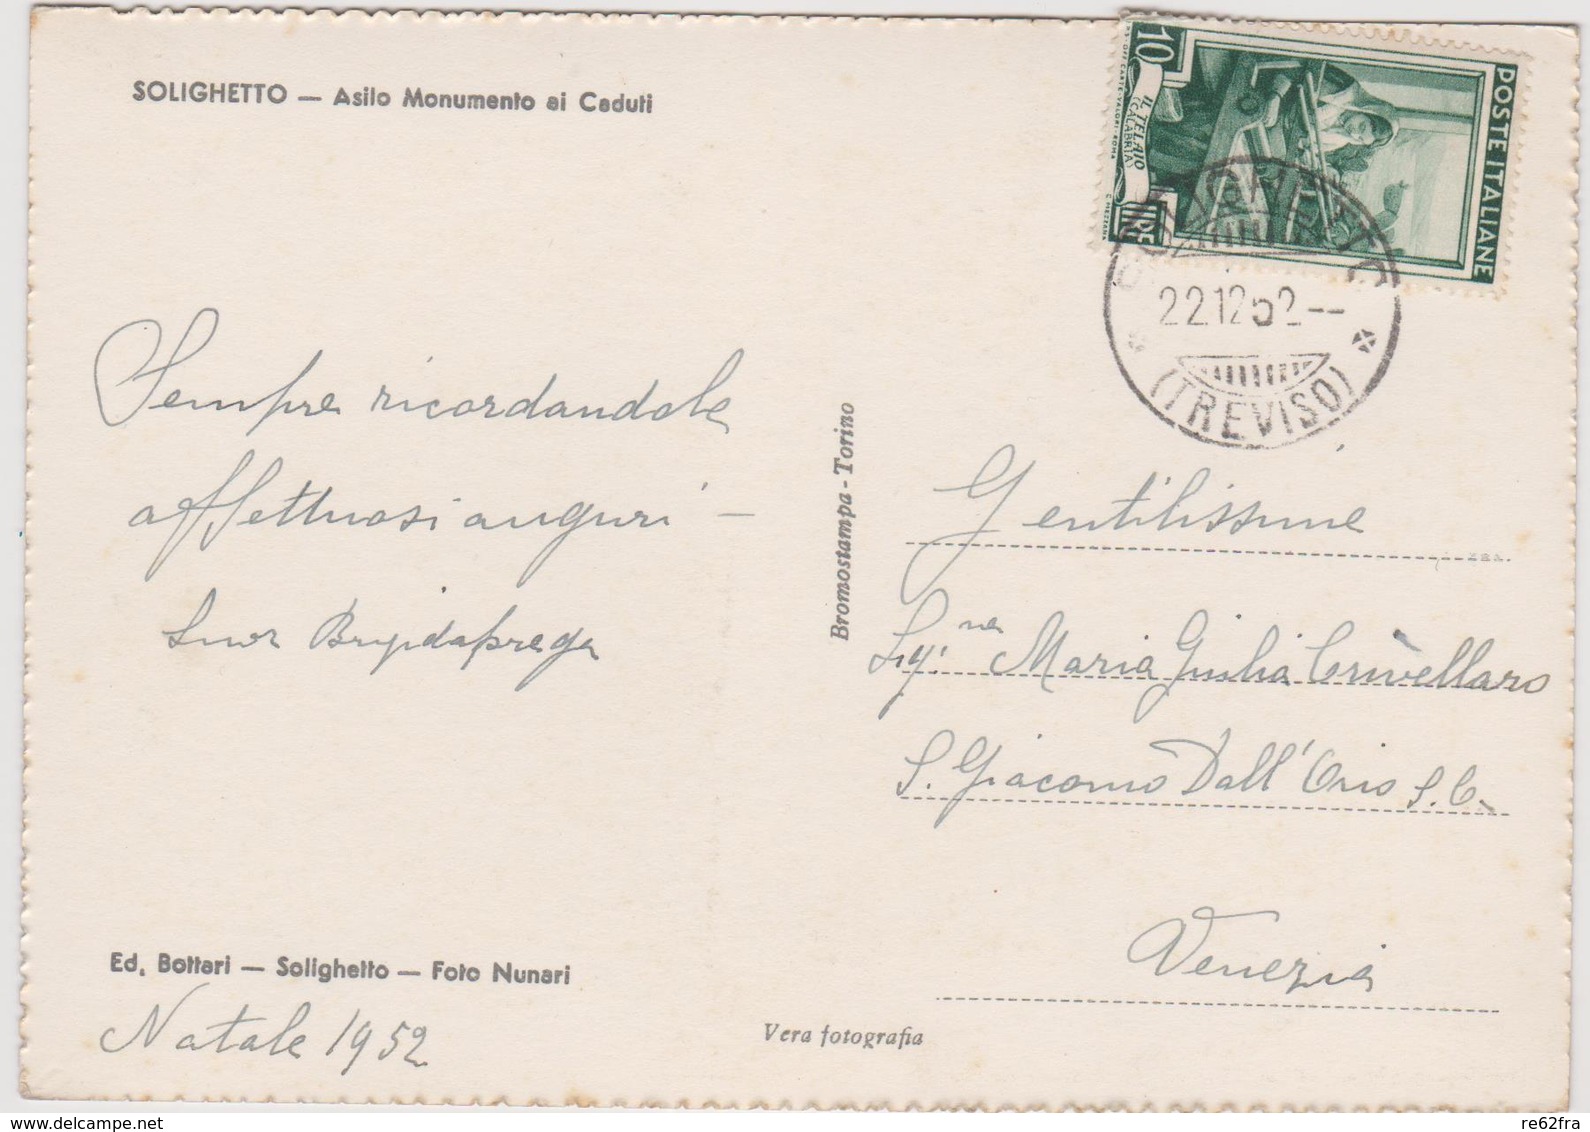 SOLIGHETTO — Asilo Monumento ai Caduti
10
LIRE
IL TELAIO
(CALABRIA)
POSTE ITALIANE
SOLIGHETTO
22.12.52--
(TREVISO)
Sempre ricordandole
affettuosi auguri –
Suor Brigida prega
Bromostampa - Torino
Gentilissime
Sig.ne Maria Giulia Crivellaro
S. Giacomo Dall'Orio S. C.
Venezia
Ed. Bottari — Solighetto — Foto Nunari
Natale 1952
Vera fotografia
delcampe.net
re62fra